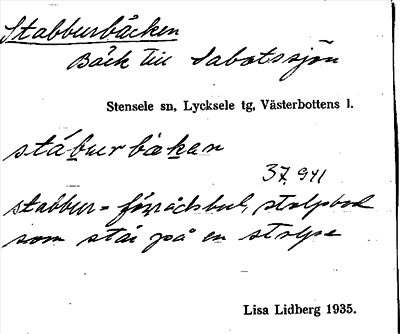 Stabburbäcken
Bäck till Sabotssjön
Stensele sn, Lycksele tg, Västerbottens l.
stáburbäkan
37,941
stabbur = förrådsbod, stolpbod
som står på en stolpe
Lisa Lidberg 1935.